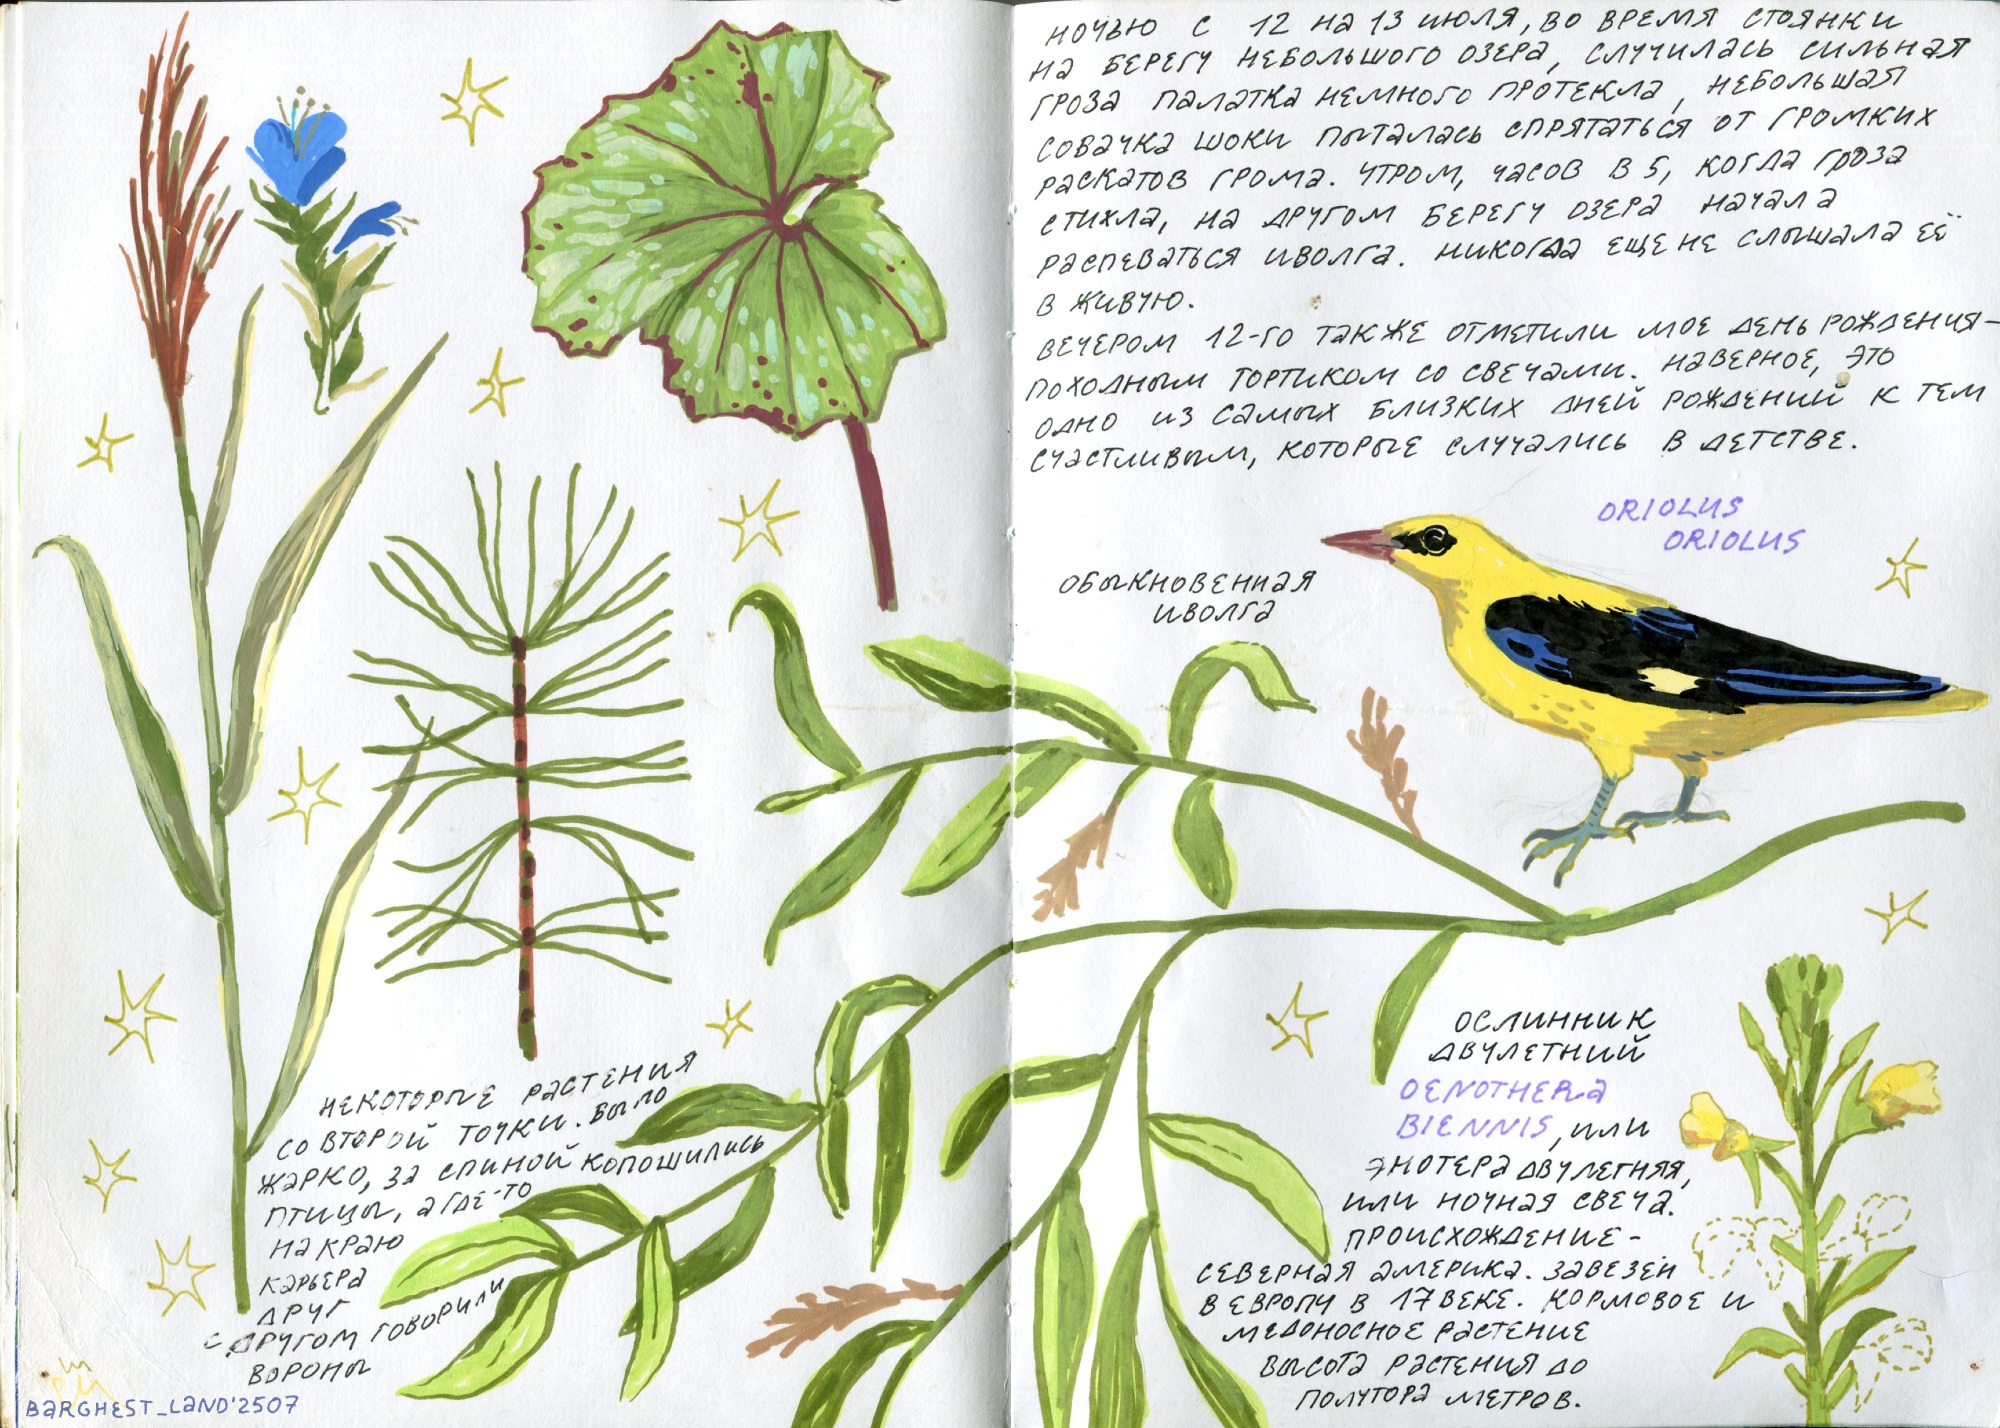 НОЧЬЮ С 12 НА 13 ИЮЛЯ, ВО ВРЕМЯ СТОЯНКИ
НА БЕРЕГУ НЕБОЛЬШОГО ОЗЕРА, СЛУЧИЛАСЬ СИЛЬНАЯ
ГРОЗА ПАЛАТКА НЕМНОГО ПРОТЕКЛА, НЕБОЛЬШАЯ
СОБАЧКА ШОКИ ПЫТАЛАСЬ СПРЯТАТЬСЯ ОТ ГРОМКИХ
РАСКАТОВ ГРОМА. УТРОМ, ЧАСОВ В 5, КОГДА ГРОЗА
СТИХЛА, НА ДРУГОМ БЕРЕГУ ОЗЕРА НАЧАЛА
РАСПЕВАТЬСЯ ИВОЛГА. НИКОГДА ЕЩЕ НЕ СЛЫШАЛА ЕЁ
В ЖИВУЮ.
ВЕЧЕРОМ 12-ГО ТАКЖЕ ОТМЕТИЛИ МОЕ ДЕНЬ РОЖДЕНИЯ-
ПОХОДНЫМ ТОРТИКОМ СО СВЕЧАМИ. НАВЕРНОЕ, ЭТО
ОДНО ИЗ САМЫХ БЛИЗКИХ ДНЕЙ РОЖДЕНИЙ К ТЕМ
СЧАСТЛИВЫМ, КОТОРЫЕ СЛУЧАЛИСЬ В ДЕТСТВЕ.
ORIOLUS
ORIOLUS
ОБЫКНОВЕННАЯ
ИВОЛГА
ОСЛИННИК
ДВУЛЕТНИЙ
OENOTHERA
BIENNIS, ИЛИ
ЭНОТЕРА ДВУЛЕТНЯЯ,
ИЛИ НОЧНАЯ СВЕЧА.
ПРОИСХОЖДЕНИЕ -
СЕВЕРНАЯ АМЕРИКА. ЗАВЕЗЕН
В ЕВРОПУ В 17 ВЕКЕ. КОРМОВОЕ И
МЕДОНОСНОЕ РАСТЕНИЕ
ВЫСОТА РАСТЕНИЯ ДО
ПОЛУТОРА МЕТРОВ.
НЕКОТОРЫЕ РАСТЕНИЯ
СО ВТОРОЙ ТОЧКИ. БЫЛО
ЖАРКО, ЗА СПИНОЙ КОПОШИЛИСЬ
ПТИЦЫ, А ГДЕ-ТО
НА КРАЮ
КАРЬЕРА
ДРУГ
С ДРУГОМ ГОВОРИЛИ
ВОРОНЫ
BARGHEST_LAND'2507